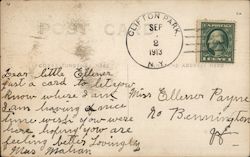 POST CARD
CLIFTON PARK
SEP
8
1913
N.Y.
Dear little Ellener
Just a card to let you
know where I am
I am having a nice
time wish you were
here, hoping you are
feeling better Lovingly
Miss Ellener Payne
No Bennington